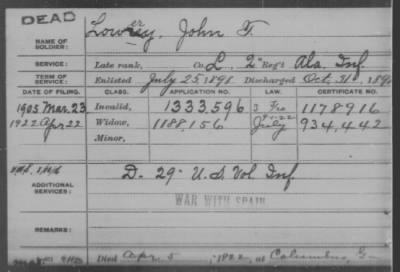 DEAD
NAME OF SOLDIER: Lowery, John T.
SERVICE: Late rank, Co. L, 2" Reg't Ala. Inf.
TERM OF SERVICE: Enlisted July 25, 1898 Discharged Oct. 31, 1898
DATE OF FILING. CLASS. APPLICATION NO. LAW. CERTIFICATE NO.
1905 Mar. 23 Invalid, 1333,596 1178916
1922 Apr 22 Widow, 1188,156 July 934,442
Minor,
ADDITIONAL SERVICES: D. 29" U S Vol Inf
WAR WITH SPAIN
REMARKS:
Died Apr. 5, 1922, at Columbus, Ga